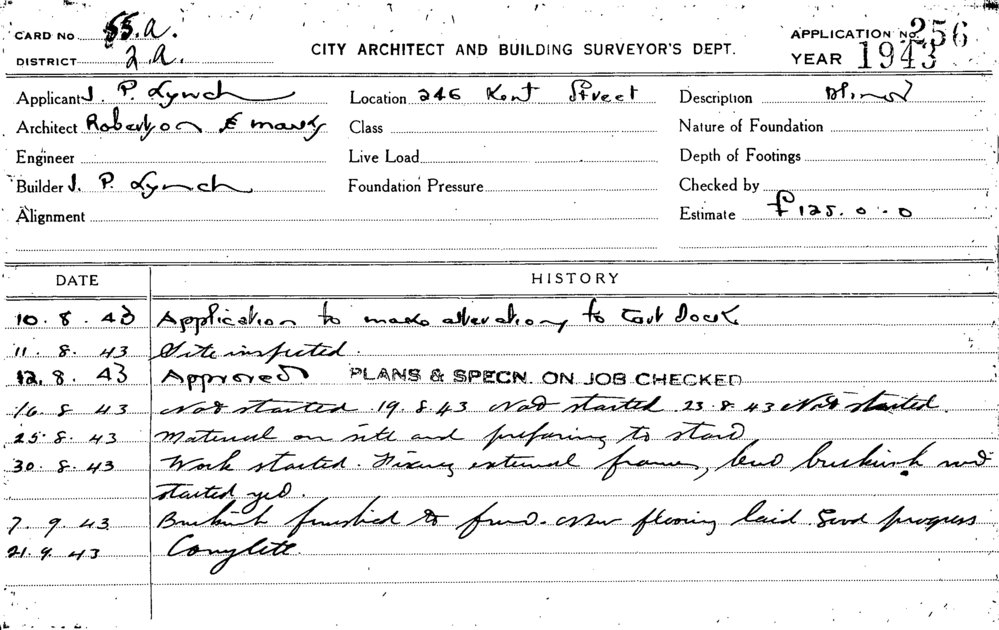 CARD NO 55.a.
DISTRICT 2.a.
CITY ARCHITECT AND BUILDING SURVEYOR'S DEPT.
APPLICATION NO. 256
YEAR 1943
Applicant J. P. Lynch
Location 246 Kent Street
Description
Architect Robertson & Marks
Class
Nature of Foundation
Engineer
Live Load
Depth of Footings
Builder J. P. Lynch
Foundation Pressure
Checked by
Alignment
Estimate £125.0.0
DATE HISTORY
10.8.43 Application to make alterations to Cart Dock
11.8.43 Site inspected.
12.8.43 Approved PLANS & SPECN. ON JOB CHECKED
16.8.43 Not started. 19.8.43 Not started. 23.8.43 Not started.
25.8.43 Material on site and preparing to start
30.8.43 Work started. Fixing external frames, but brickwork not
started yet.
7.9.43 Brickwork finished to front. New flooring laid. Good progress
21.9.43 Complete.